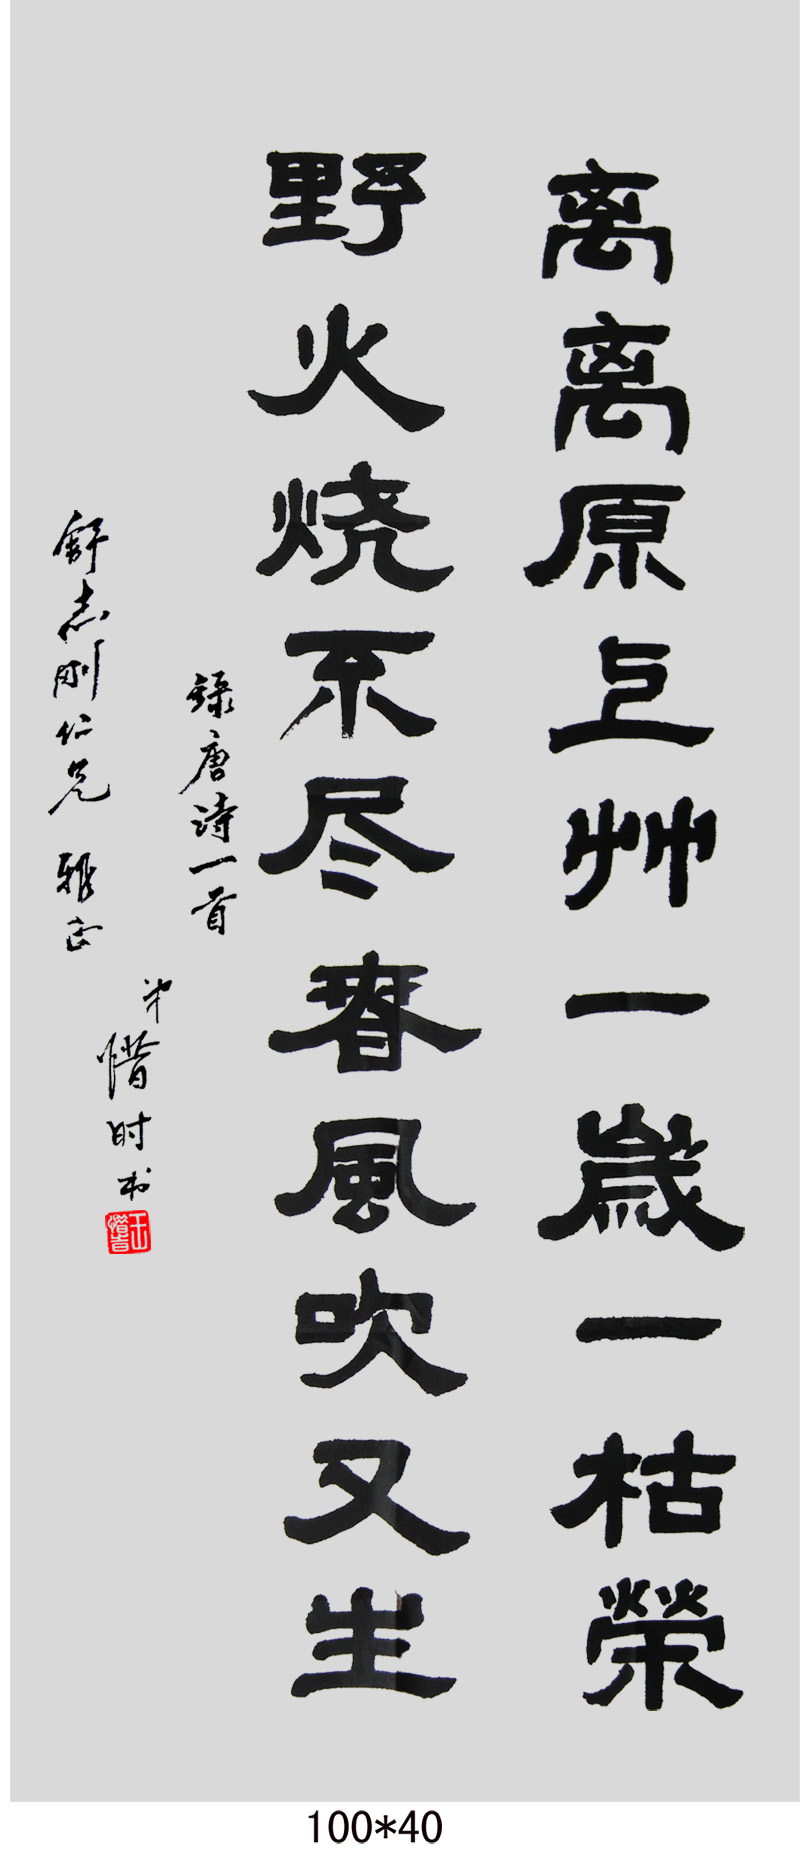 离离原上艸一歳一枯榮
野火烧不尽春風吹又生
録唐诗一首
舒志刚仁兄 雅正
弟惜时书
王惜时
100*40